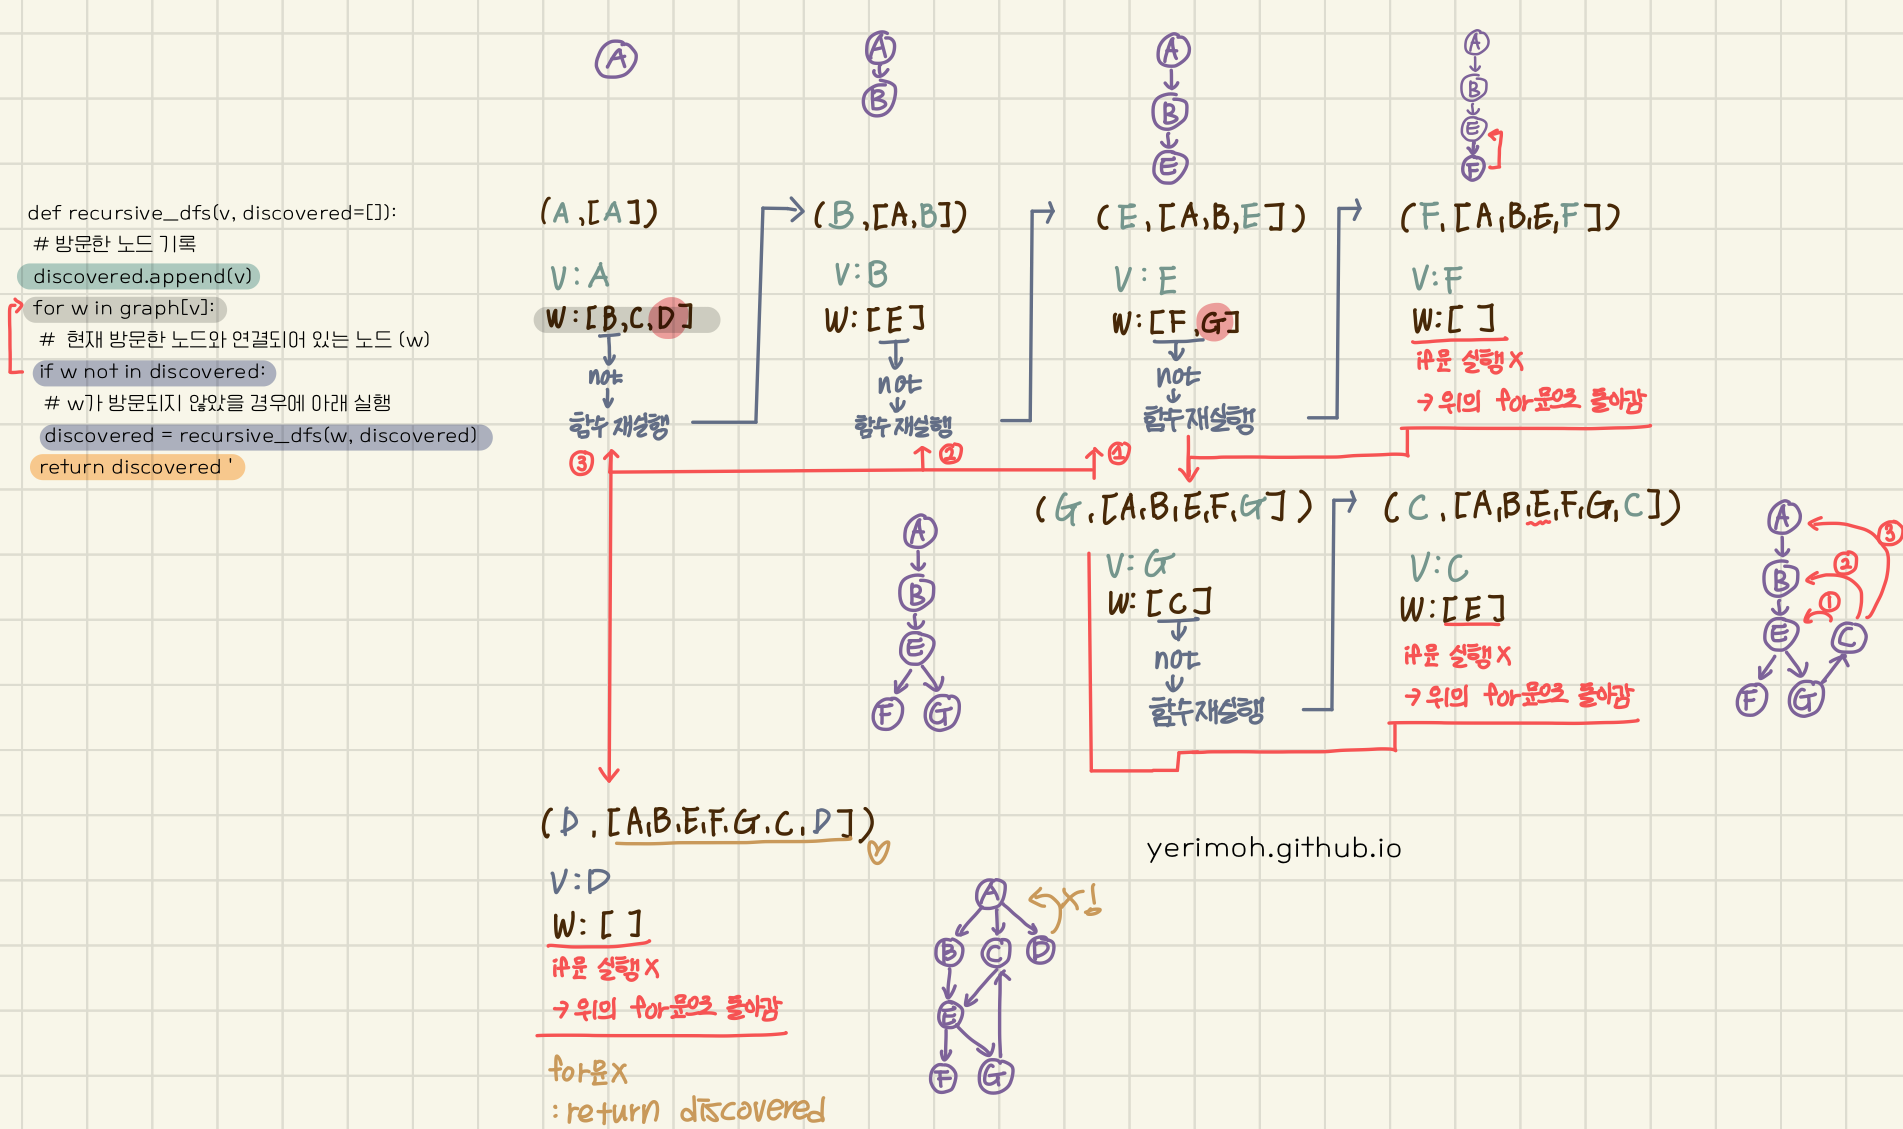 def recursive_dfs(v, discovered=[]):
# 방문한 노드 기록
discovered.append(v)
for w in graph[v]:
# 현재 방문한 노드와 연결되어 있는 노드 (w)
if w not in discovered:
# w가 방문되지 않았을 경우에 아래 실행
discovered = recursive_dfs(w, discovered)
return discovered '
A
(A,[A])
V:A
W:[B,C,D]
not
함수 재실행
③
A
B
(B,[A,B])
V:B
W:[E]
not
함수 재실행
②
A
B
E
(E,[A,B,E])
V:E
W:[F,G]
not
함수재실행
①
A
B
E
F
(F,[A,B,E,F])
V:F
W:[ ]
if문 실행X
→위의 for문으로 돌아감
A
B
E
F G
(G,[A,B,E,F,G])
V:G
W:[C]
not
함수재실행
(C,[A,B,E,F,G,C])
V:C
W:[E]
if문 실행X
→위의 for문으로 돌아감
A ③
B ②
E ① C
F G
(D,[A,B,E,F,G,C,D])
V:D
W:[ ]
if문 실행X
→위의 for문으로 돌아감
for문X
:return discovered
yerimoh.github.io
A X!
B C D
E
F G